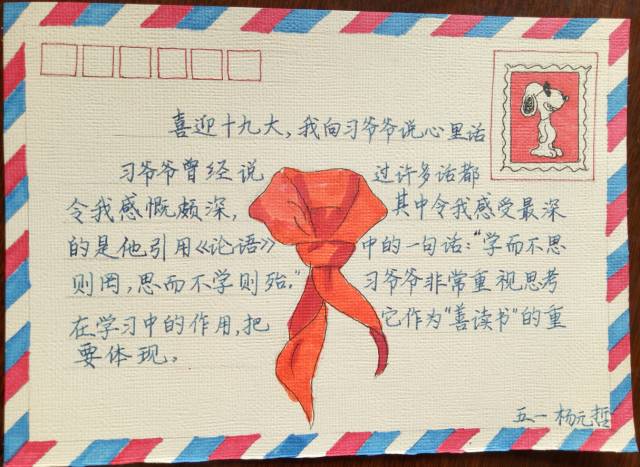 喜迎十九大，我向习爷爷说心里话
习爷爷曾经说过许多话都
令我感慨颇深，其中令我感受最深
的是他引用《论语》中的一句话：“学而不思
则罔，思而不学则殆。”习爷爷非常重视思考
在学习中的作用，把它作为“善读书”的重
要体现。
五一 杨元哲